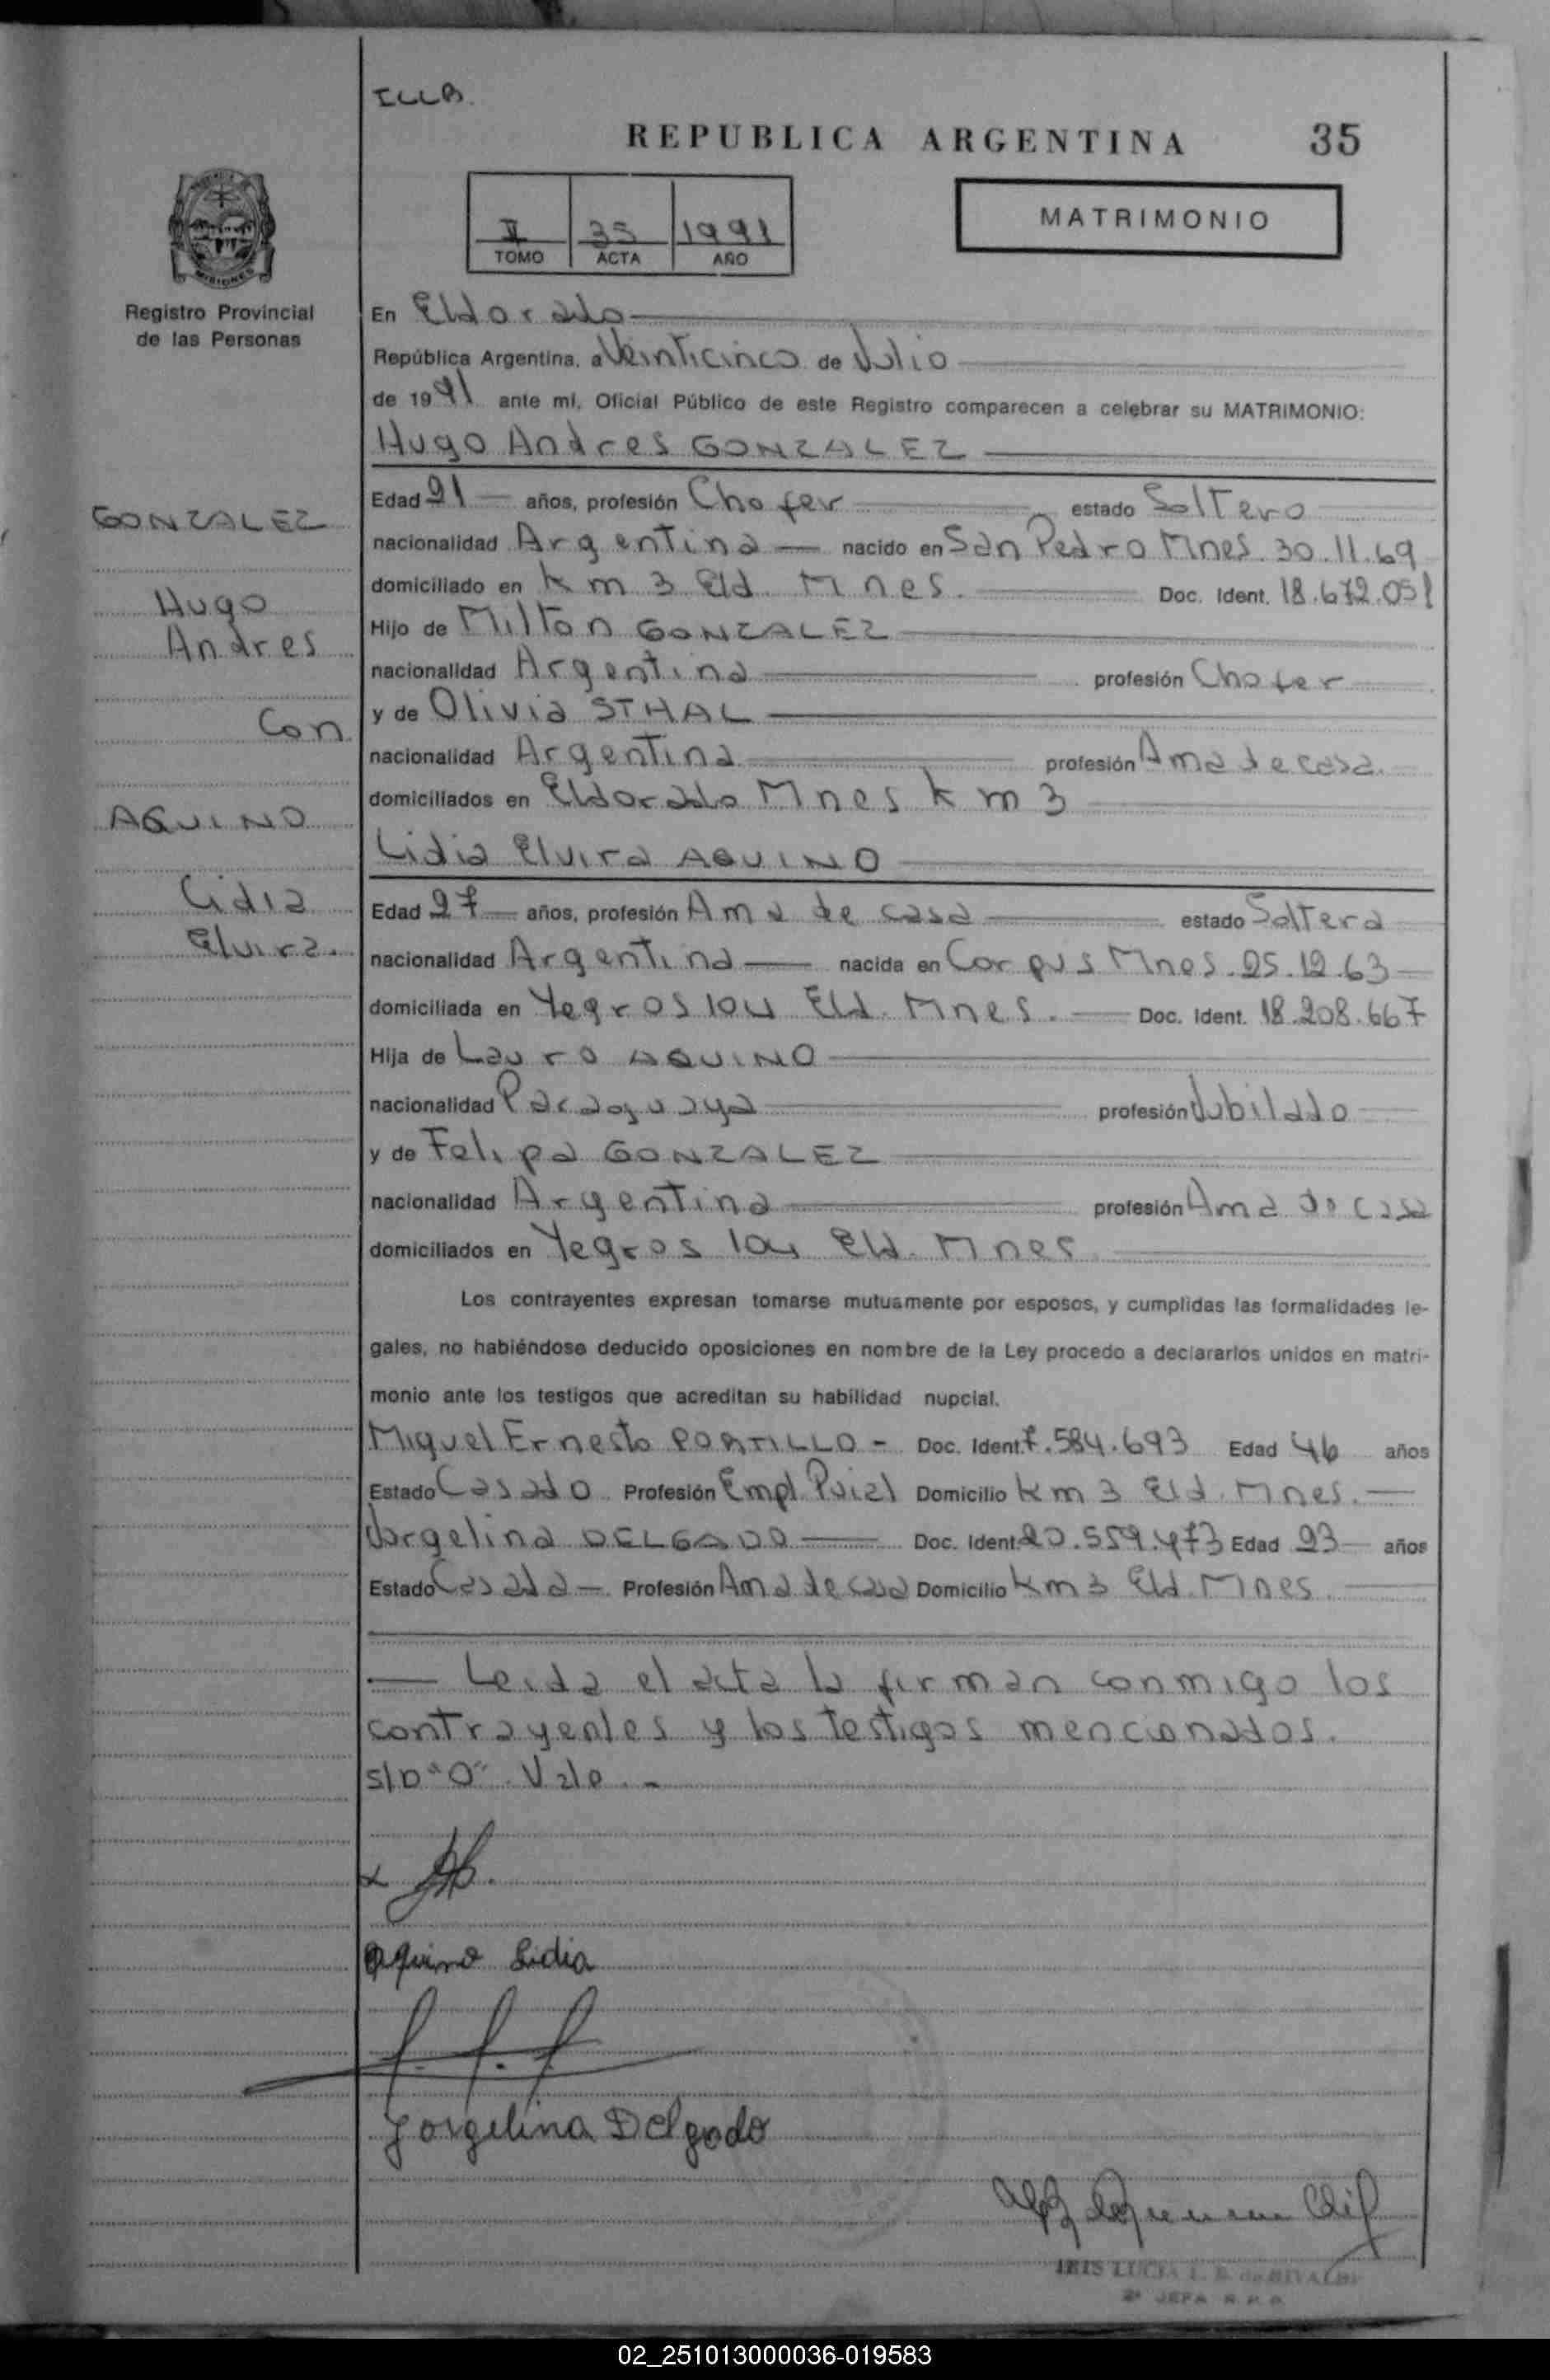 ILLB.
REPUBLICA ARGENTINA 35
II 35 1991
TOMO ACTA AÑO
MATRIMONIO
MISIONES
Registro Provincial
de las Personas
En Eldorado
República Argentina, a Veinticinco de Julio
de 1991 ante mí, Oficial Público de este Registro comparecen a celebrar su MATRIMONIO:
Hugo Andres GONZALEZ
GONZALEZ
Hugo
Andres
Con
AQUINO
Lidia
Elvira.
Edad 21 años, profesión Chofer estado Soltero
nacionalidad Argentina nacido en San Pedro Mnes. 30.11.69
domiciliado en Km 3 Eld. Mnes. Doc. Ident. 18.672.051
Hijo de Milton GONZALEZ
nacionalidad Argentina profesión Chofer
y de Olivia STHAL
nacionalidad Argentina profesión Ama de casa.
domiciliados en Eldorado Mnes Km 3
Lidia Elvira AQUINO
Edad 27 años, profesión Ama de casa estado Soltera
nacionalidad Argentina nacida en Corpus Mnes. 25.12.63
domiciliada en Yegros 104 Eld. Mnes. Doc. Ident. 18.208.667
Hija de Lauro AQUINO
nacionalidad Paraguaya profesión Jubilado
y de Felipa GONZALEZ
nacionalidad Argentina profesión Ama de casa
domiciliados en Yegros 104 Eld. Mnes
Los contrayentes expresan tomarse mutuamente por esposos, y cumplidas las formalidades le-
gales, no habiéndose deducido oposiciones en nombre de la Ley procedo a declararlos unidos en matri-
monio ante los testigos que acreditan su habilidad nupcial.
Miguel Ernesto PORTILLO - Doc. Ident. 7.584.693 Edad 46 años
Estado Casado Profesión Empl. Domicilio Km 3 Eld. Mnes.
Jorgelina DELGADO Doc. Ident. 20.559.473 Edad 23 años
Estado Casada Profesión Ama de casa Domicilio Km 3 Eld. Mnes.
— Leida el acta la firman conmigo los
contrayentes y los testigos mencionados.
S/b "O" Vale. -
Aquino Lidia
Jorgelina Delgado
IRIS LUCIA L. B. de
2ª JEFA R. P. P.
02_251013000036-019583